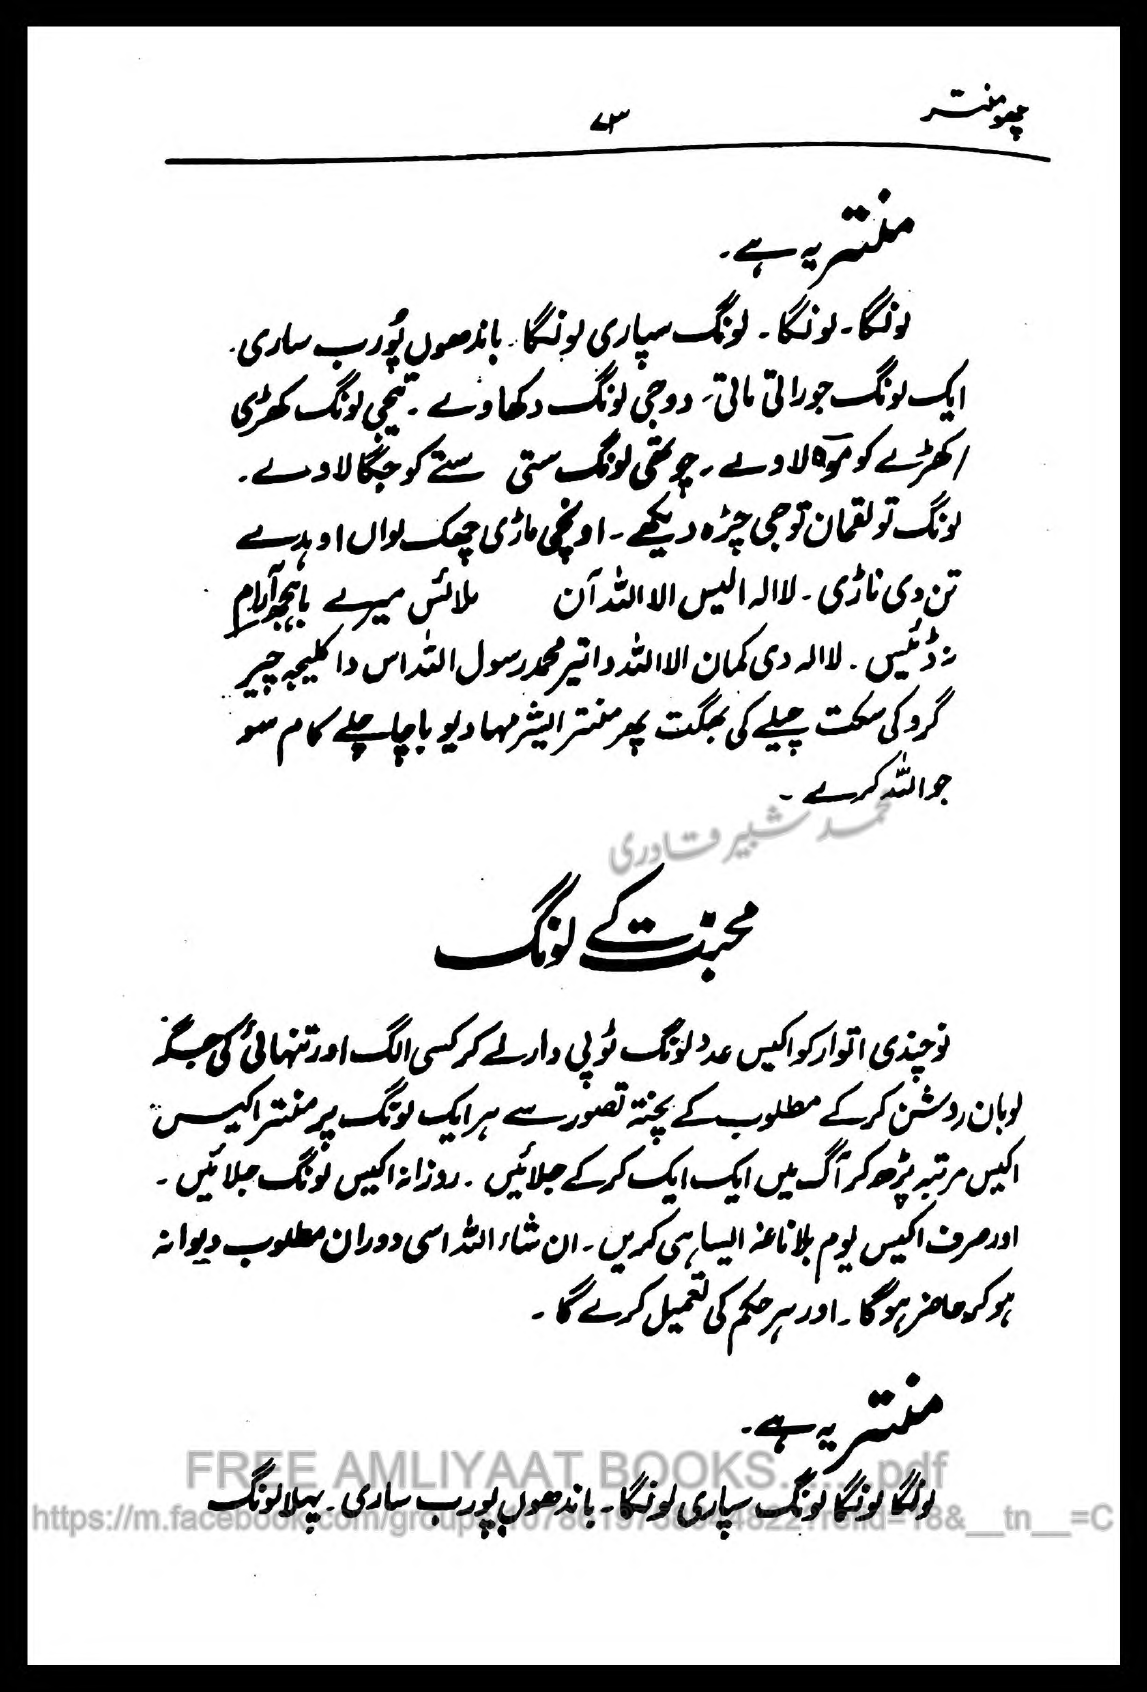 چھو منتر
۷۳
منتر یہ ہے۔
لونگا۔ لونگا۔ لونگ سپاری لونگا۔ باندھوں پُورب ساری۔
ایک لونگ جو راتی ماتی، دوجی لونگ دکھاوے۔ تیجی لونگ کھڑی
اکھڑے کو لاوے۔ چوتھی لونگ ستی ستے کو جگا لاوے۔
لونگ تو لقمان توجی چڑہ دیکھے۔ اونچی ماڑی چھک لواں اوہدے
تن دی ناڑی۔ لا الہ الیس الا اللہ آن ملائس میرے آرام
نہ ڈئیس۔ لا الہ دی کمان الا اللہ دا تیر محمد رسول اللہ اس دا کلیجہ چیر
گرو کی سکت چیلے کی بھگت پھر منتر ایشر مہادیو باچا چلے کام سو
جو اللہ کرے۔
محمد شبیر قادری
محبت کے لونگ
نوچندی اتوار کو اکیس عدد لونگ ٹوپی دار لے کر کسی الگ اور تنہائی کی جگہ
لوبان روشن کر کے مطلوب کے پختہ تصور سے ہر ایک لونگ پر منتر اکیس
اکیس مرتبہ پڑھ کر آگ میں ایک ایک کر کے جلائیں۔ روزانہ اکیس لونگ جلائیں۔
اور صرف اکیس یوم بلاناغہ ایسا ہی کریں۔ ان شاء اللہ اسی دوران مطلوب دیوانہ
ہو کر حاضر ہو گا۔ اور ہر حکم کی تعمیل کرے گا۔
منتر یہ ہے۔
FREE AMLIYAAT BOOKS .... pdf
لونگا لونگا لونگ سپاری لونگا۔ باندھوں پورب ساری۔ پہلا لونگ